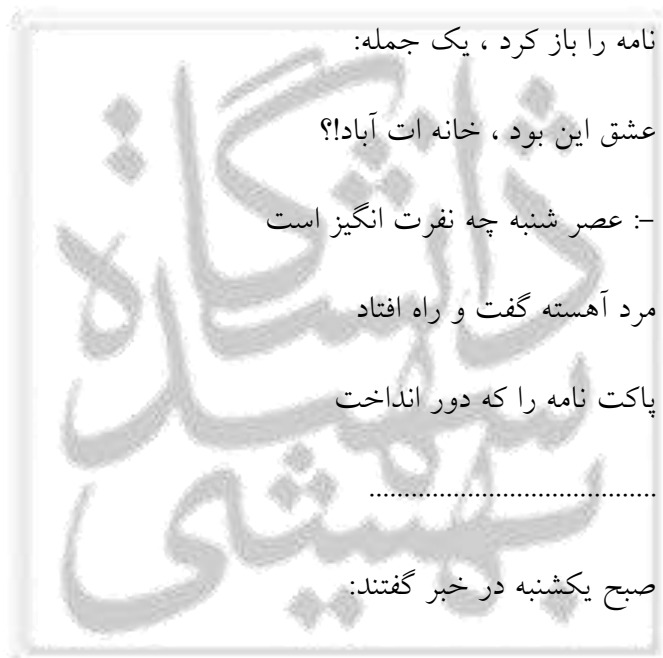 نامه را باز کرد ، یک جمله:
عشق این بود ، خانه ات آباد!؟
-: عصر شنبه چه نفرت انگیز است
مرد آهسته گفت و راه افتاد
پاکت نامه را که دور انداخت
.........................................
صبح یکشنبه در خبر گفتند:
دانشگاه
شهید
بهشتی